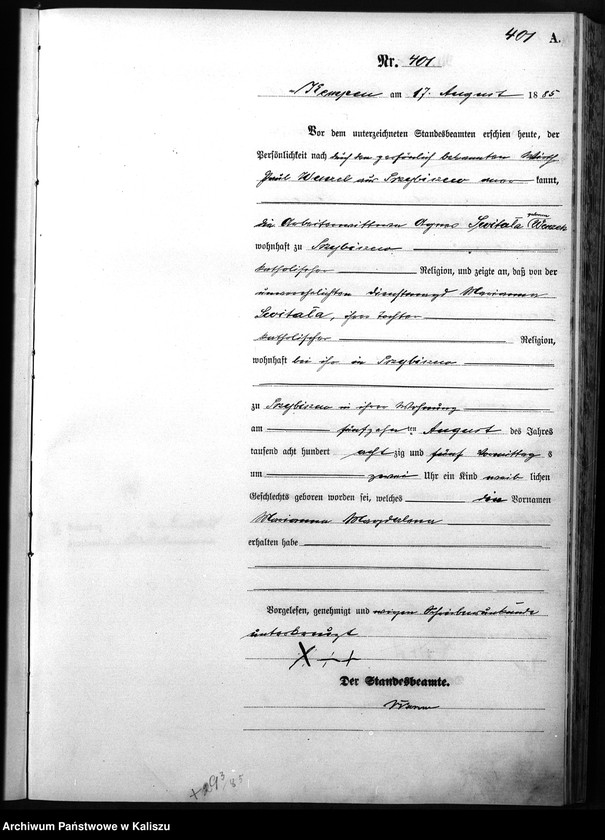 401 A.
Nr. 401
Kempen am 17. August 1885
Vor dem unterzeichneten Standesbeamten erschien heute, der
Persönlichkeit nach durch den persönlich bekannten Wirth
Paul aus kannt,
die Arbeiterwittwe Agnes geborene
wohnhaft zu
katholischer Religion, und zeigte an, daß von der
unverehelichten Dienstmagd Marianna
ihrer Tochter
katholischer Religion,
wohnhaft bei ihr in
zu in ihrer Wohnung
am fünfzehnten August des Jahres
tausend acht hundert achtzig und fünf Vormittags
um zwei Uhr ein Kind weiblichen
Geschlechts geboren worden sei, welches die Vornamen
Marianna Magdalena
erhalten habe
Vorgelesen, genehmigt und wegen Schreibensunkunde
unterkreuzt
+++
Der Standesbeamte.
Archiwum Państwowe w Kaliszu